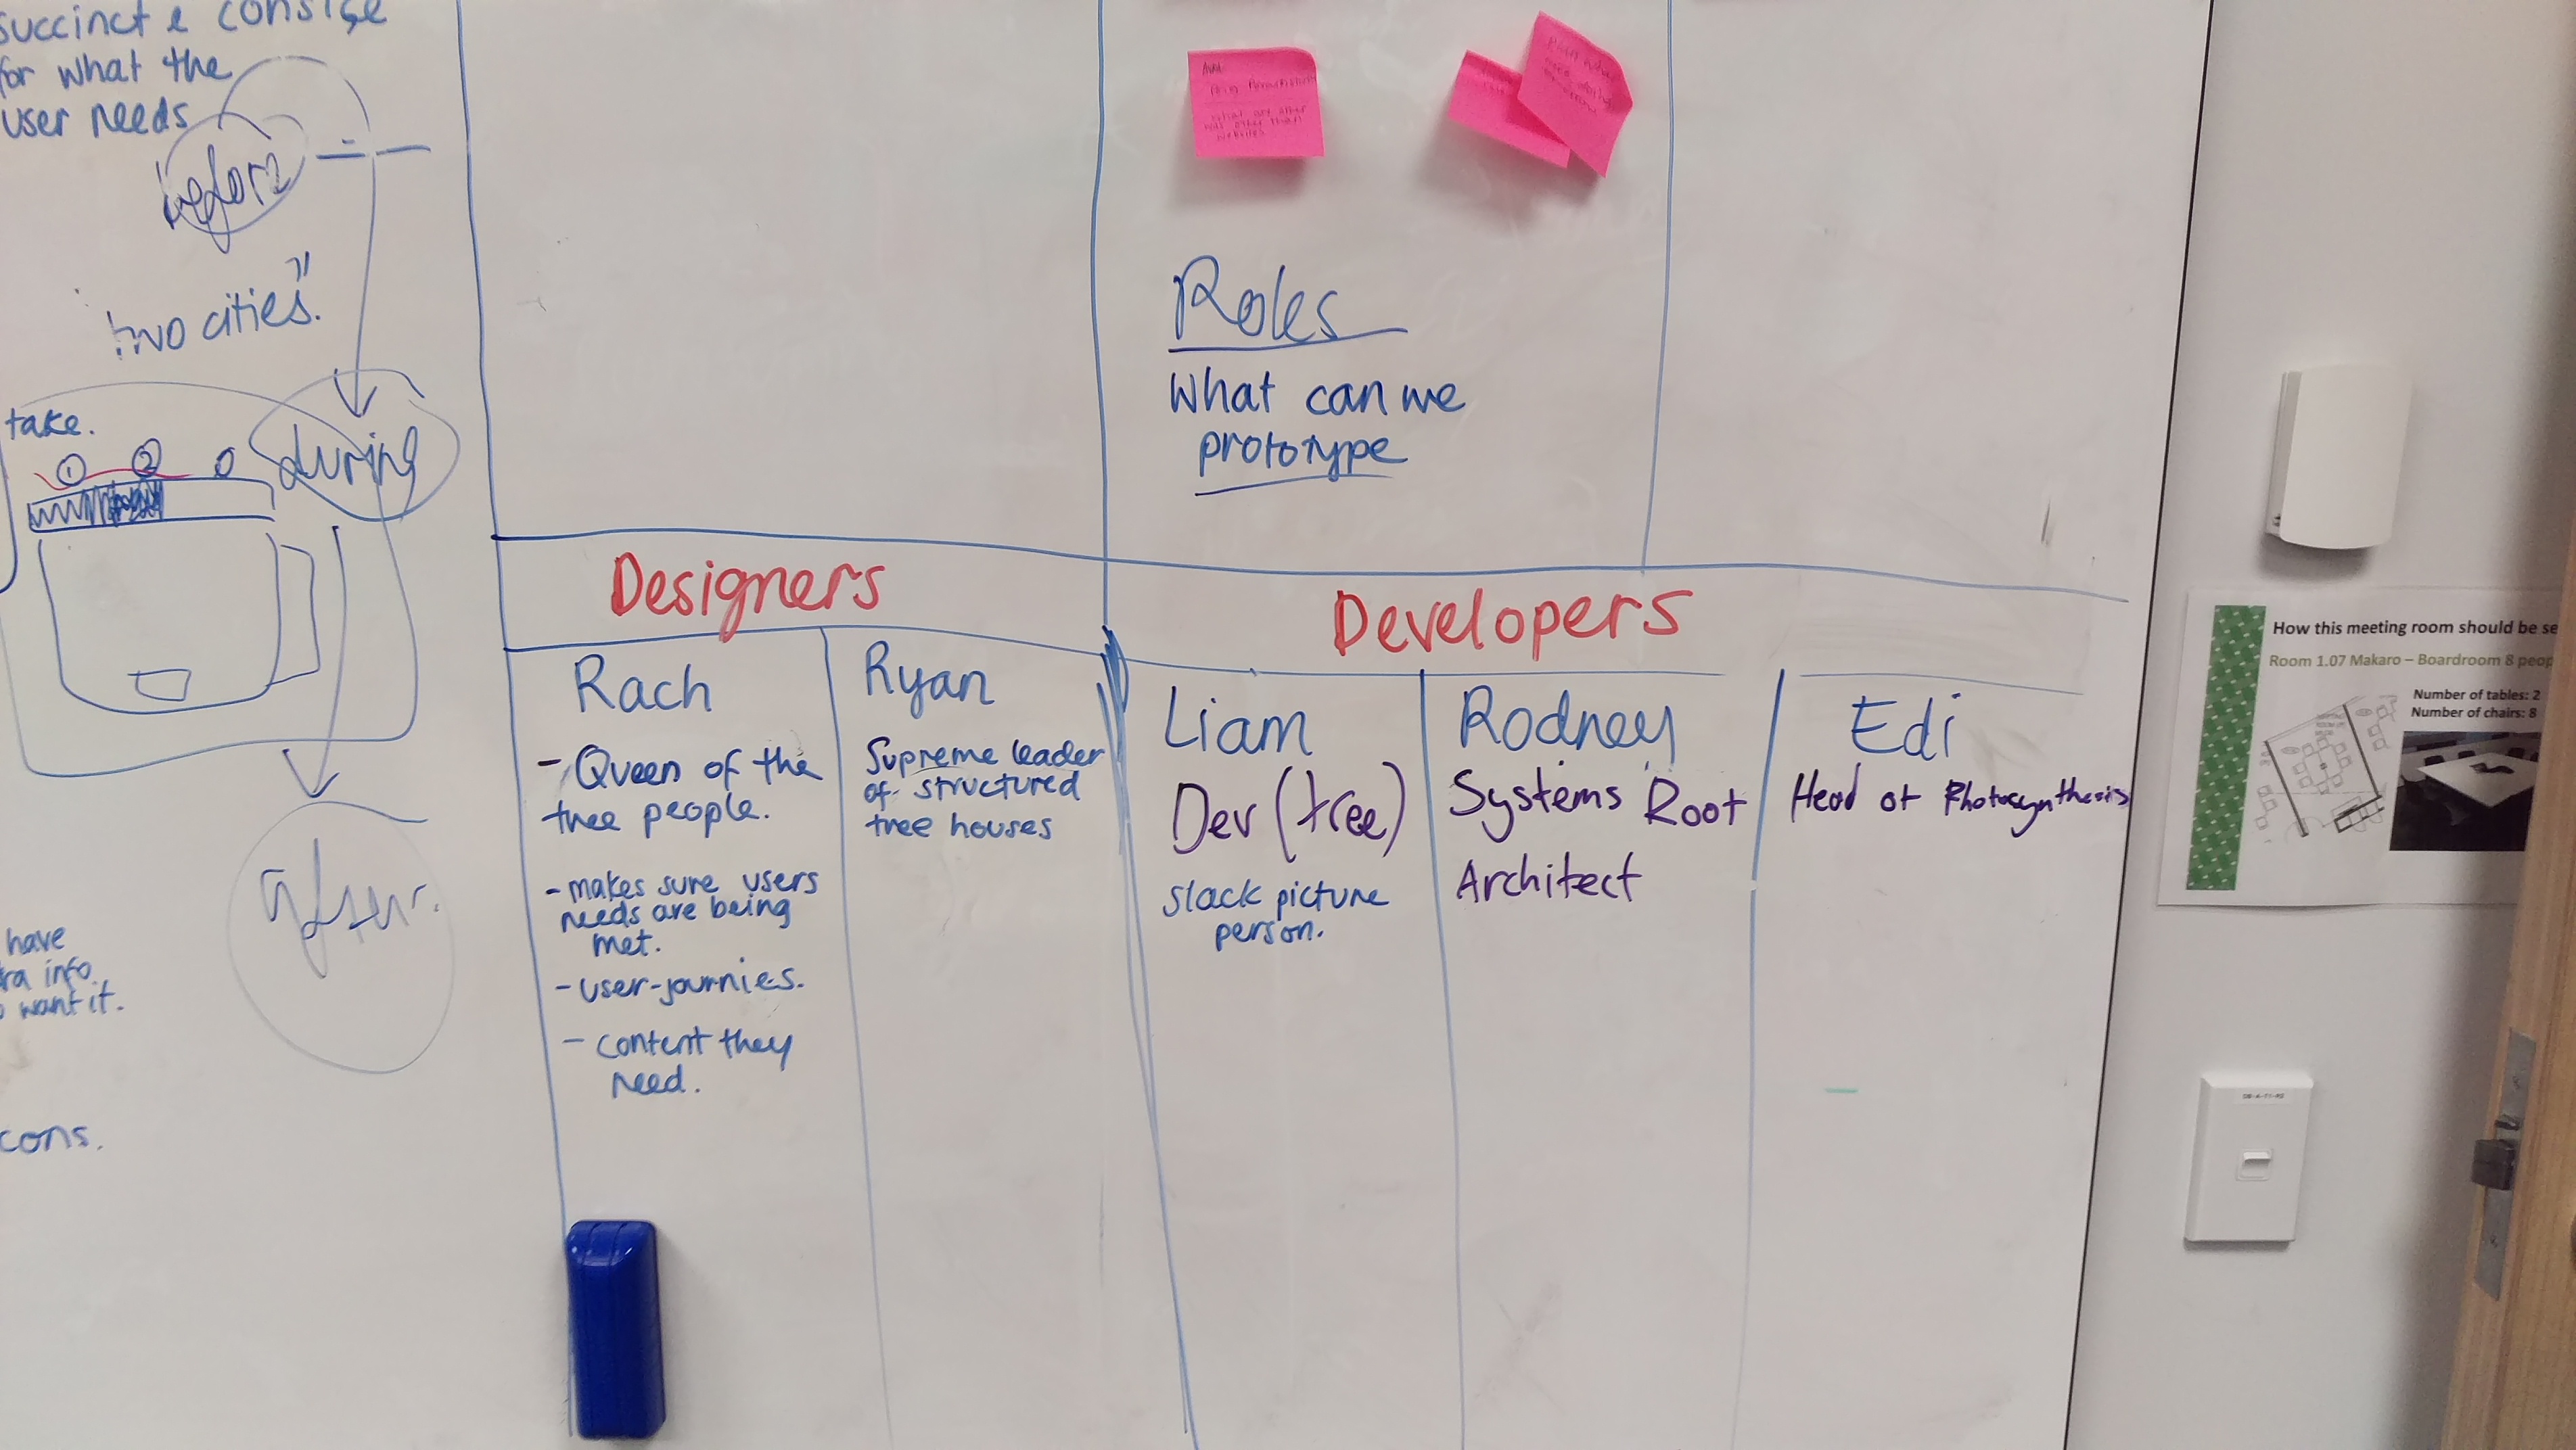 succinct & consise
for what the
user needs
before
two cities."
take.
1 2
during
after.
have
info
want it.
cons.
what are other
other than
websites
Roles
What can we
prototype
Designers
Developers
Rach
- Queen of the
tree people.
- makes sure users
needs are being
met.
- user-journies.
- content they
need.
Ryan
Supreme leader
of structured
tree houses
Liam
Dev (tree)
slack picture
person.
Rodney
Systems Root
Architect
Edi
Head of Photosynthesis
How this meeting room should be se
Room 1.07 Makaro – Boardroom 8 peop
Number of tables: 2
Number of chairs: 8